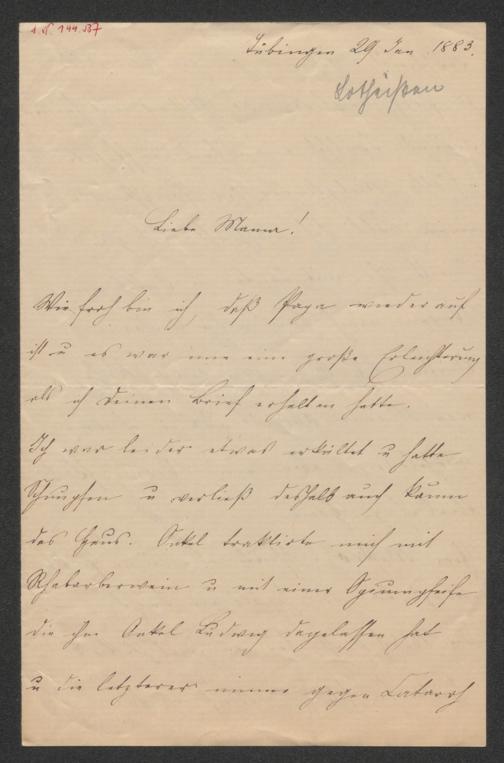 I.N. 144.537
Tübingen 29 Jan 1883.
Lotheißen
Liebe Mama!
Wie froh bin ich, daß Papa wieder auf
ist u es war mir eine große Erleichterung
als ich Deinen Brief erhalten hatte.
Ich war leider etwas erkältet u hatte
Schnupfen u verließ deshalb auch kaum
das Haus. Onkel traktirte mich mit
Rhabarberwein u mit einer Opiumpfeife
die ihm Onkel Ludwig dagelassen hat
u die letzterer immer gegen Catarrh